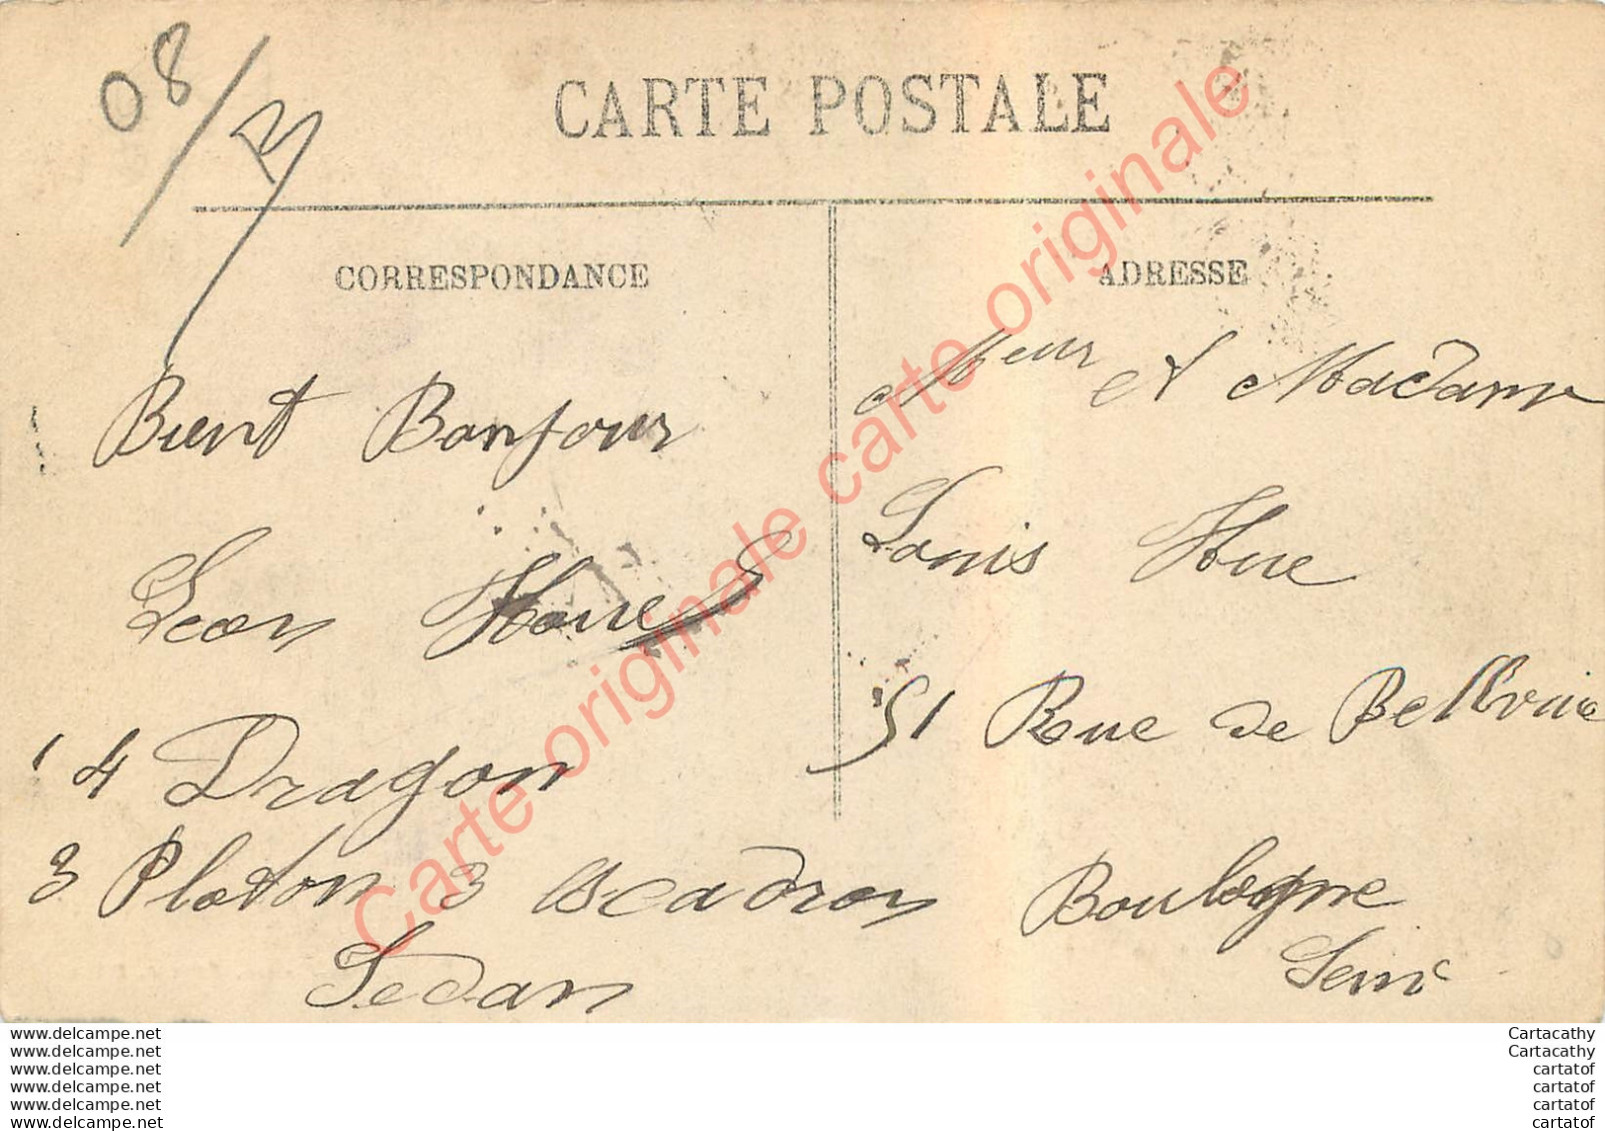 08/R
CARTE POSTALE
CORRESPONDANCE
Bient Bonjour
Leon Hane
14 Dragon
3 Platon 3 escadron
Sedan
ADRESSE
Meur et Madame
Louis Hue
51 Rue de Bellvuie
Boulogne
Seine
Carte originale carte originale
www.delcampe.net
www.delcampe.net
www.delcampe.net
www.delcampe.net
www.delcampe.net
www.delcampe.net
Cartacathy
Cartacathy
cartatof
cartatof
cartatof
cartatof